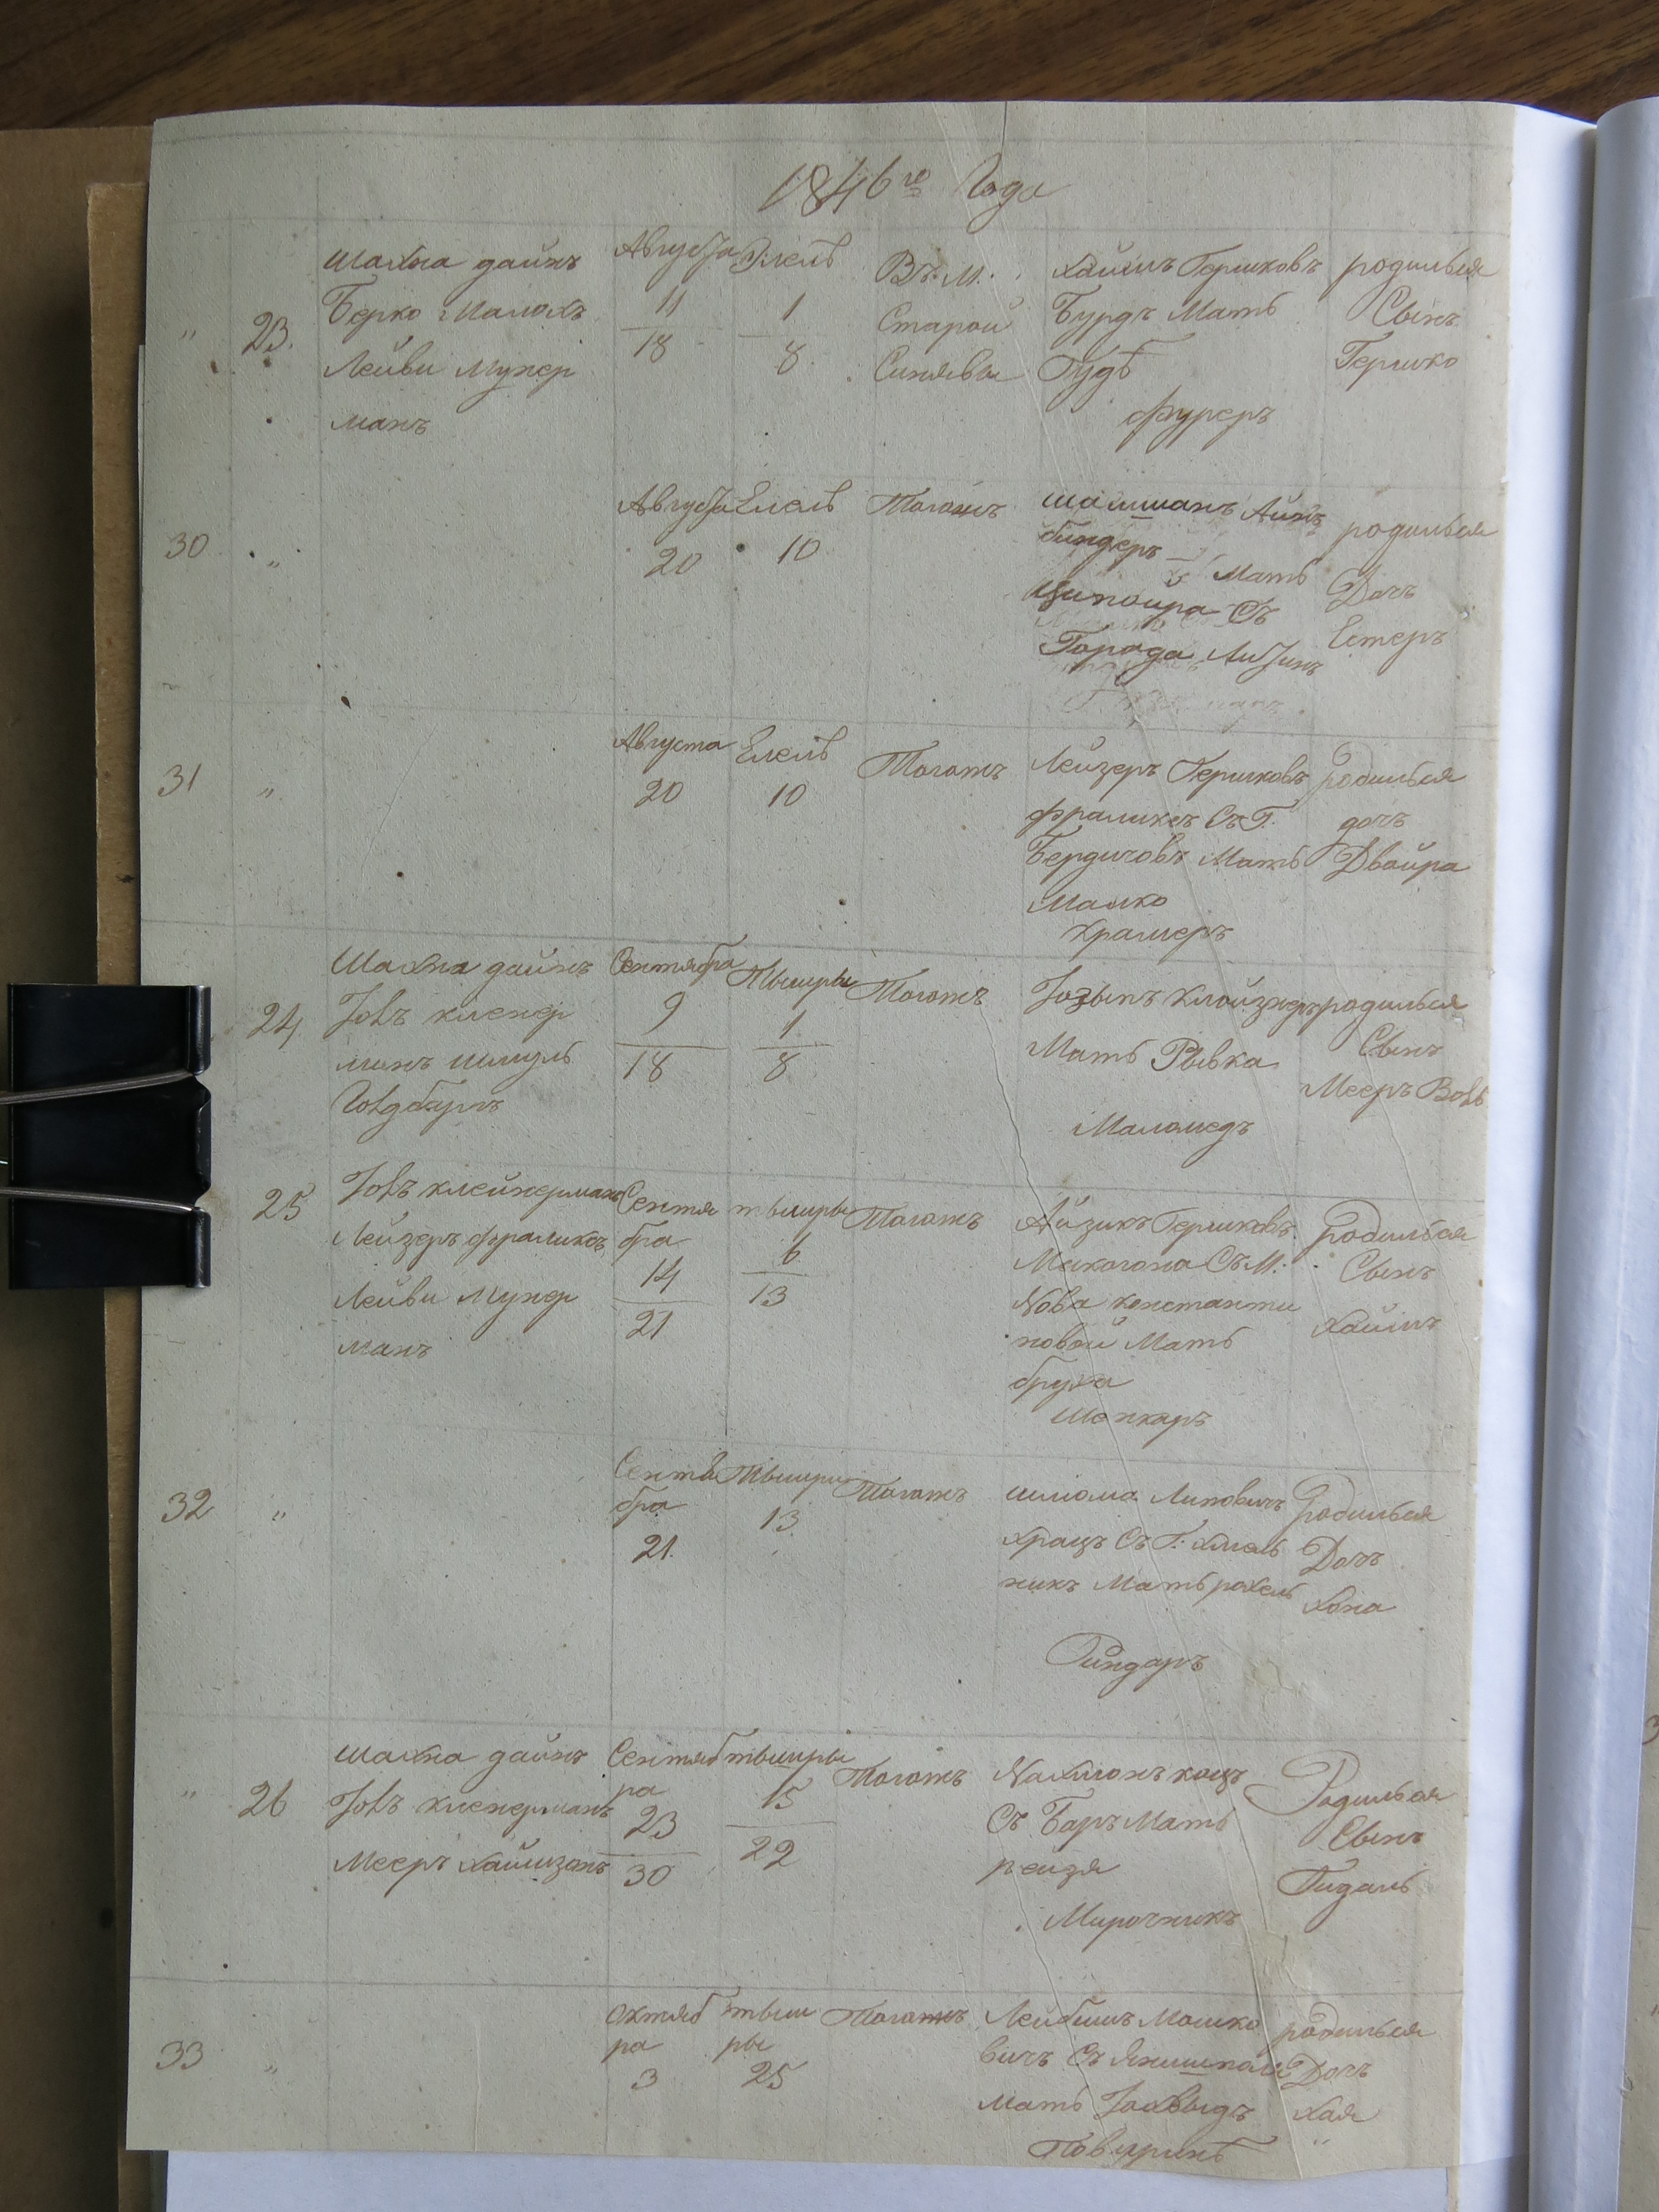 1846го Года
" 23.
Шахна даинъ
Берко Малохъ
Лейви Мунер
манъ
Августа
11
18
1
8
Въ М.
Старой
Синявы
Хаимъ Гершковъ
Бурдъ Мать
Фуреръ
родилься
Сынъ
Гершко
30 "
Августа
20
Елель
10
Тогожъ
биндеръ
Мать
Ципойра Съ
Города
родилься
Дочъ
Естеръ
31 "
Августа
20
Елель
10
Тогожъ
Лейзеръ Гершковъ
Фраликъ Съ Г.
Бердичовъ Мать
Малко
Крамеръ
родилься
дочъ
Двойра
24
Шахна даинъ
Іовъ кленер
манъ шмуль
Сентября
9
18
Тышры
1
8
Тогожъ
Мать Рывка
Маламедъ
родилься
Сынъ
Мееръ Вовъ
25
Іовъ клейнерманъ
Лейзеръ фраликъ
Лейви Мунер
манъ
Сентя
бра
14
21
тышры
6
13
Тогожъ
Айзикъ Гершковъ
Макогона Съ М.
Нова константи
новой Мать
бруха
Шенкаръ
родилься
Сынъ
Хаимъ
32 "
Сентя
бра
21.
Тышры
13
Тогожъ
шлома Липовичъ
Крацъ Съ Г. Хмель
никъ Мать рахель
родилься
Дочъ
Хона
" 26
шахна даинъ
Іовъ кленерманъ
Мееръ Хаимзонъ
Сентяб
ра
23
30
тышры
15
22
Тогожъ
Нахманъ кацъ
Съ Баръ Мать
рейзя
Мирочникъ
Родилься
Сынъ
Гидаль
33 "
октяб
ра
3
тыш
ры
25
Тогожъ
Лейбишъ Мошко
вичъ Съ Янишполя
мать Іохвыдъ
родилься
Дочъ
Хая
"